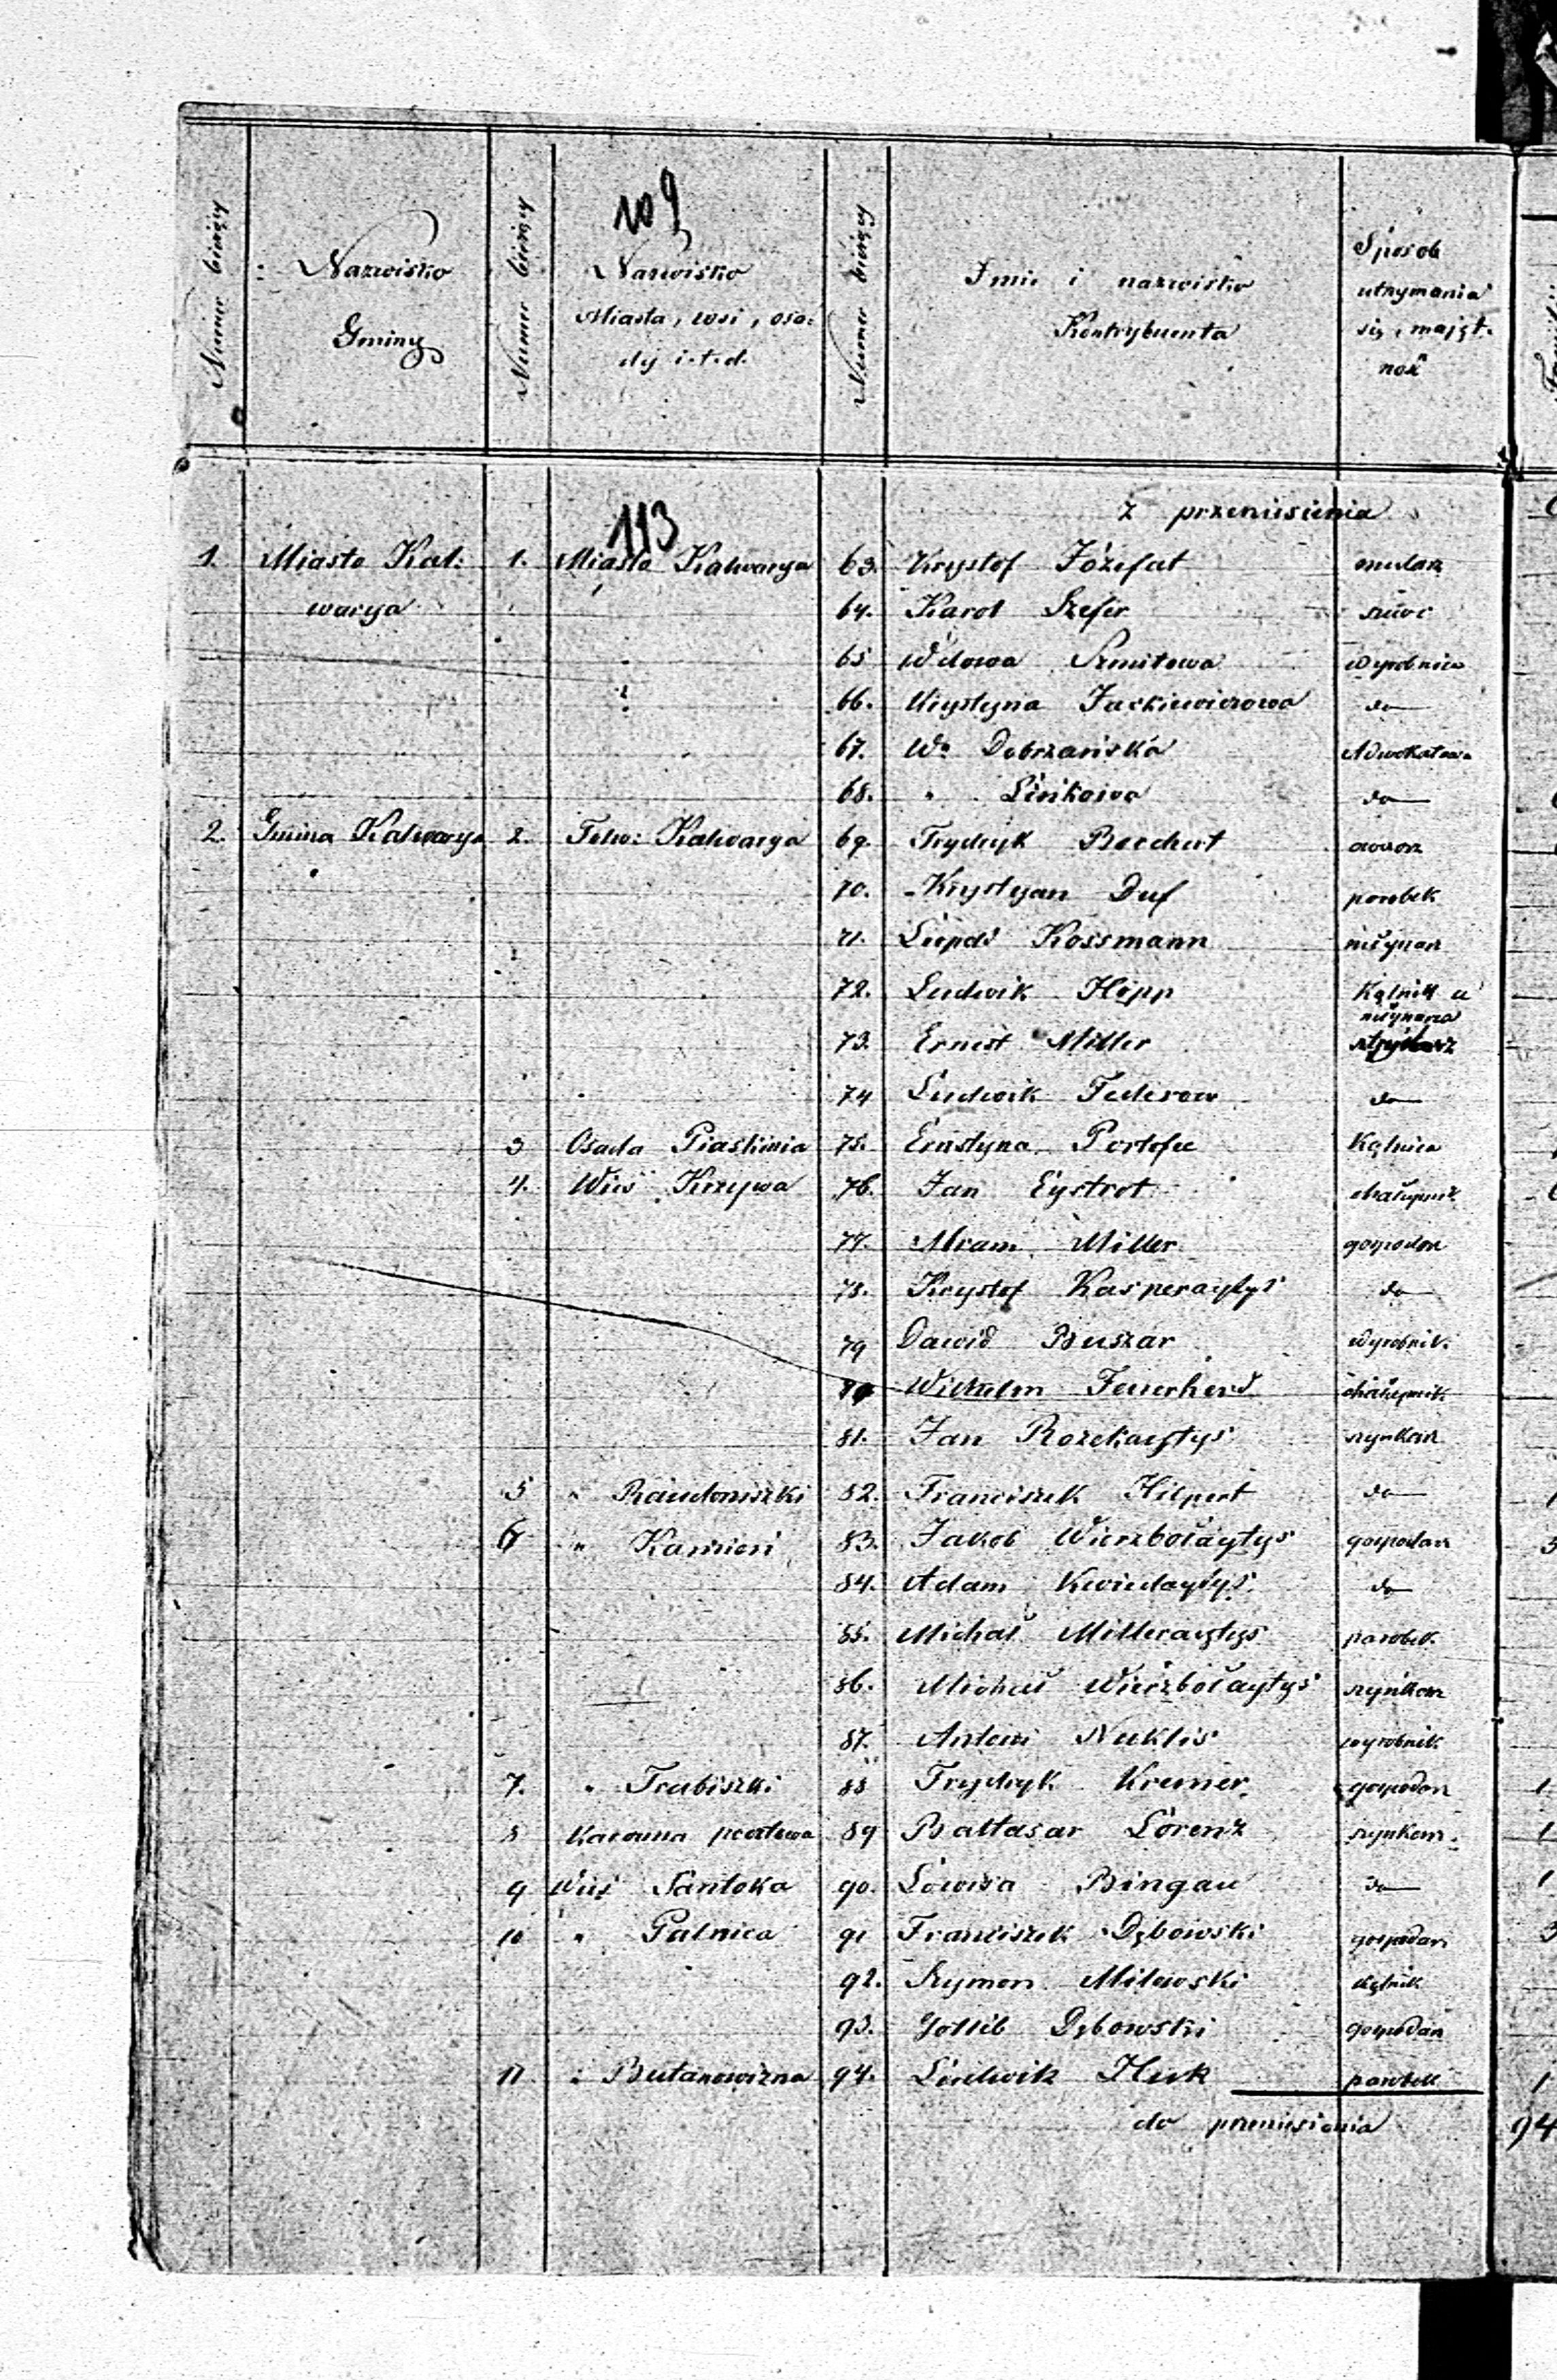 109
Numer bieżący
Nazwisko Gminy
Numer bieżący
Nazwisko Miasta, wsi, osady i.t.d.
Numer bieżący
Imie i nazwisko Kontrybuenta
Sposob utrzymania się, majętność
113
z przeniesienia
1. Miasto Kal: 1. Miasto Kalwarya 63. Krystof Józefat mularz
warya 64. Karol Szefer szewc
65 Wdowa Szmitowa wyrobnica
66. Krystyna Jackiewiczowa do
67. Wa Dobrzańska Adwokatowa
68. " Linkowa do
2. Gmina Kalwarya 2. Folw: Kalwarya 69. Frydryk Borchert
70. Krystyan Duf parobek
71. Leopold Kossmann młynarz
72. Ludwik Hepp Kątnik u młynarza
73. Ernest Miller
74 Ludwik Federow do
3 Osada Piaskinia 75. Ernstyna Portofee Kątnica
4. Wieś Krzywa 76. Jan Eystrot chałupnik
77. Abram Miller gospodarz
78. Krystof Kasperaytys do
79 Dawid Buszar wyrobnik
80 Wilhelm Feuerherd chałupnik
81. Jan Rozekaytys szynkarz
5 " Raudoniszki 82. Franciszek Hilpert do
6 " Kamień 83. Jakob Wierzbołaytys gospodarz
84. Adam Kwiedaytys do
85. Michał Milleraytys parobek
86. Michał Wierzbołaytys szynkarz
87. Antoni Nuklis wyrobnik
7. " Trabiszki 88 Frydryk Kremer gospodarz
8 Karczma pocztowa 89 Baltasar Lorenz szynkarz
9 Wieś Santoka 90. Lowisa Bingau do
10 " Palnica 91 Franciszek Dębowski gospodarz
92. Szymon Milewski kątnik
93. Gotlib Dębowski gospodarz
11 " Butanowizna 94. Ludwik Huk parobek
do przeniesienia 94